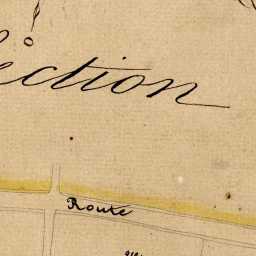 ection
Route